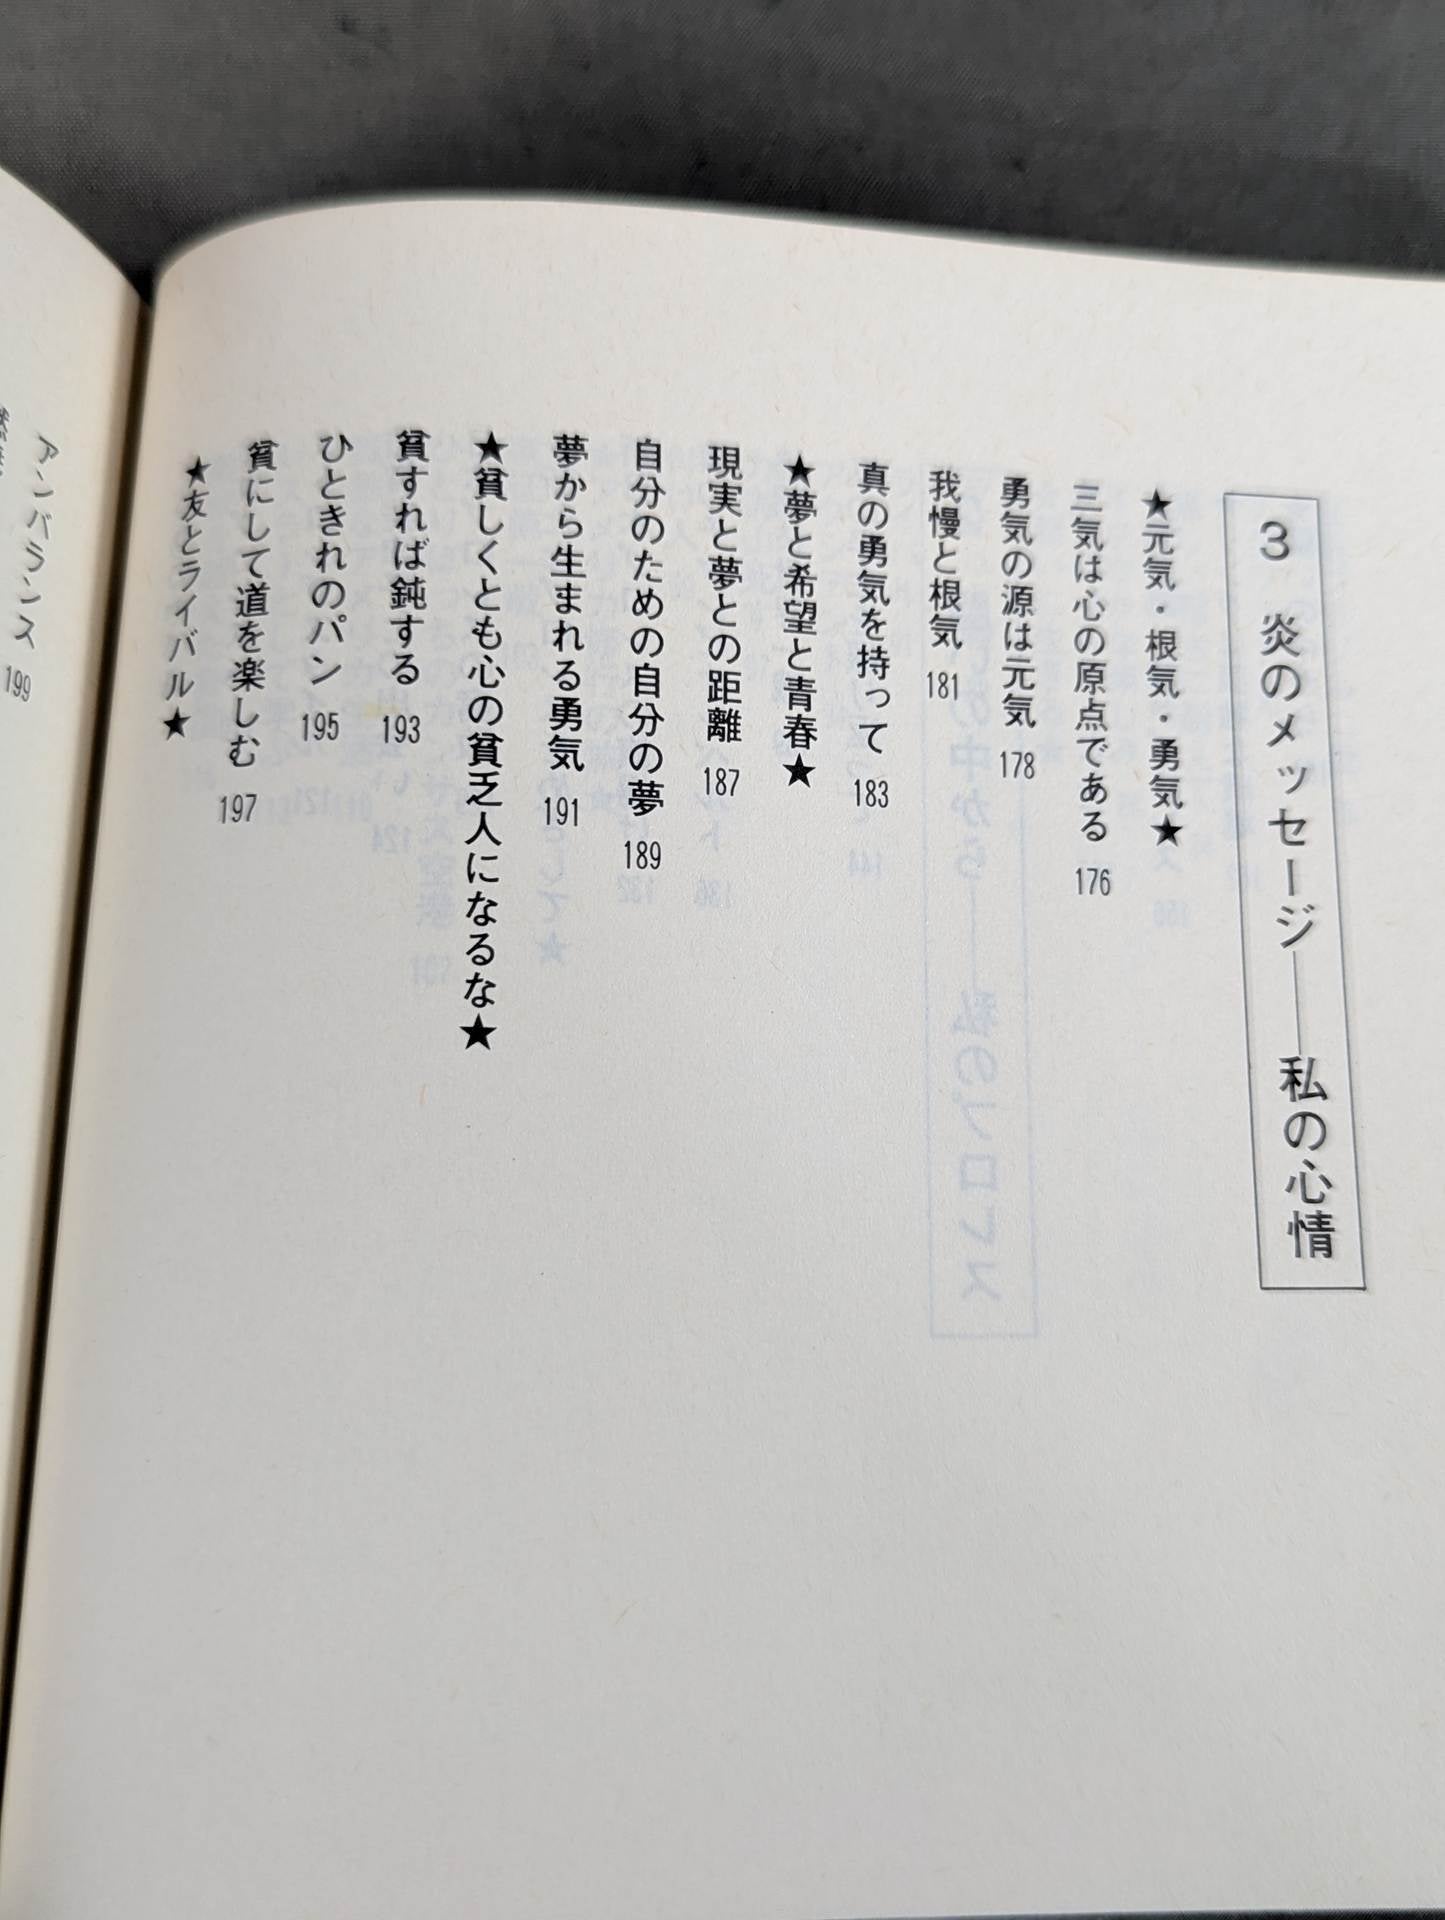 3 炎のメッセージ――私の心情
★元気・根気・勇気★
三気は心の原点である 176
勇気の源は元気 178
我慢と根気 181
真の勇気を持って 183
★夢と希望と青春★
現実と夢との距離 187
自分のための自分の夢 189
夢から生まれる勇気 191
★貧しくとも心の貧乏人になるな★
貧すれば鈍する 193
ひときれのパン 195
貧にして道を楽しむ 197
★友とライバル★
アンバランス 199